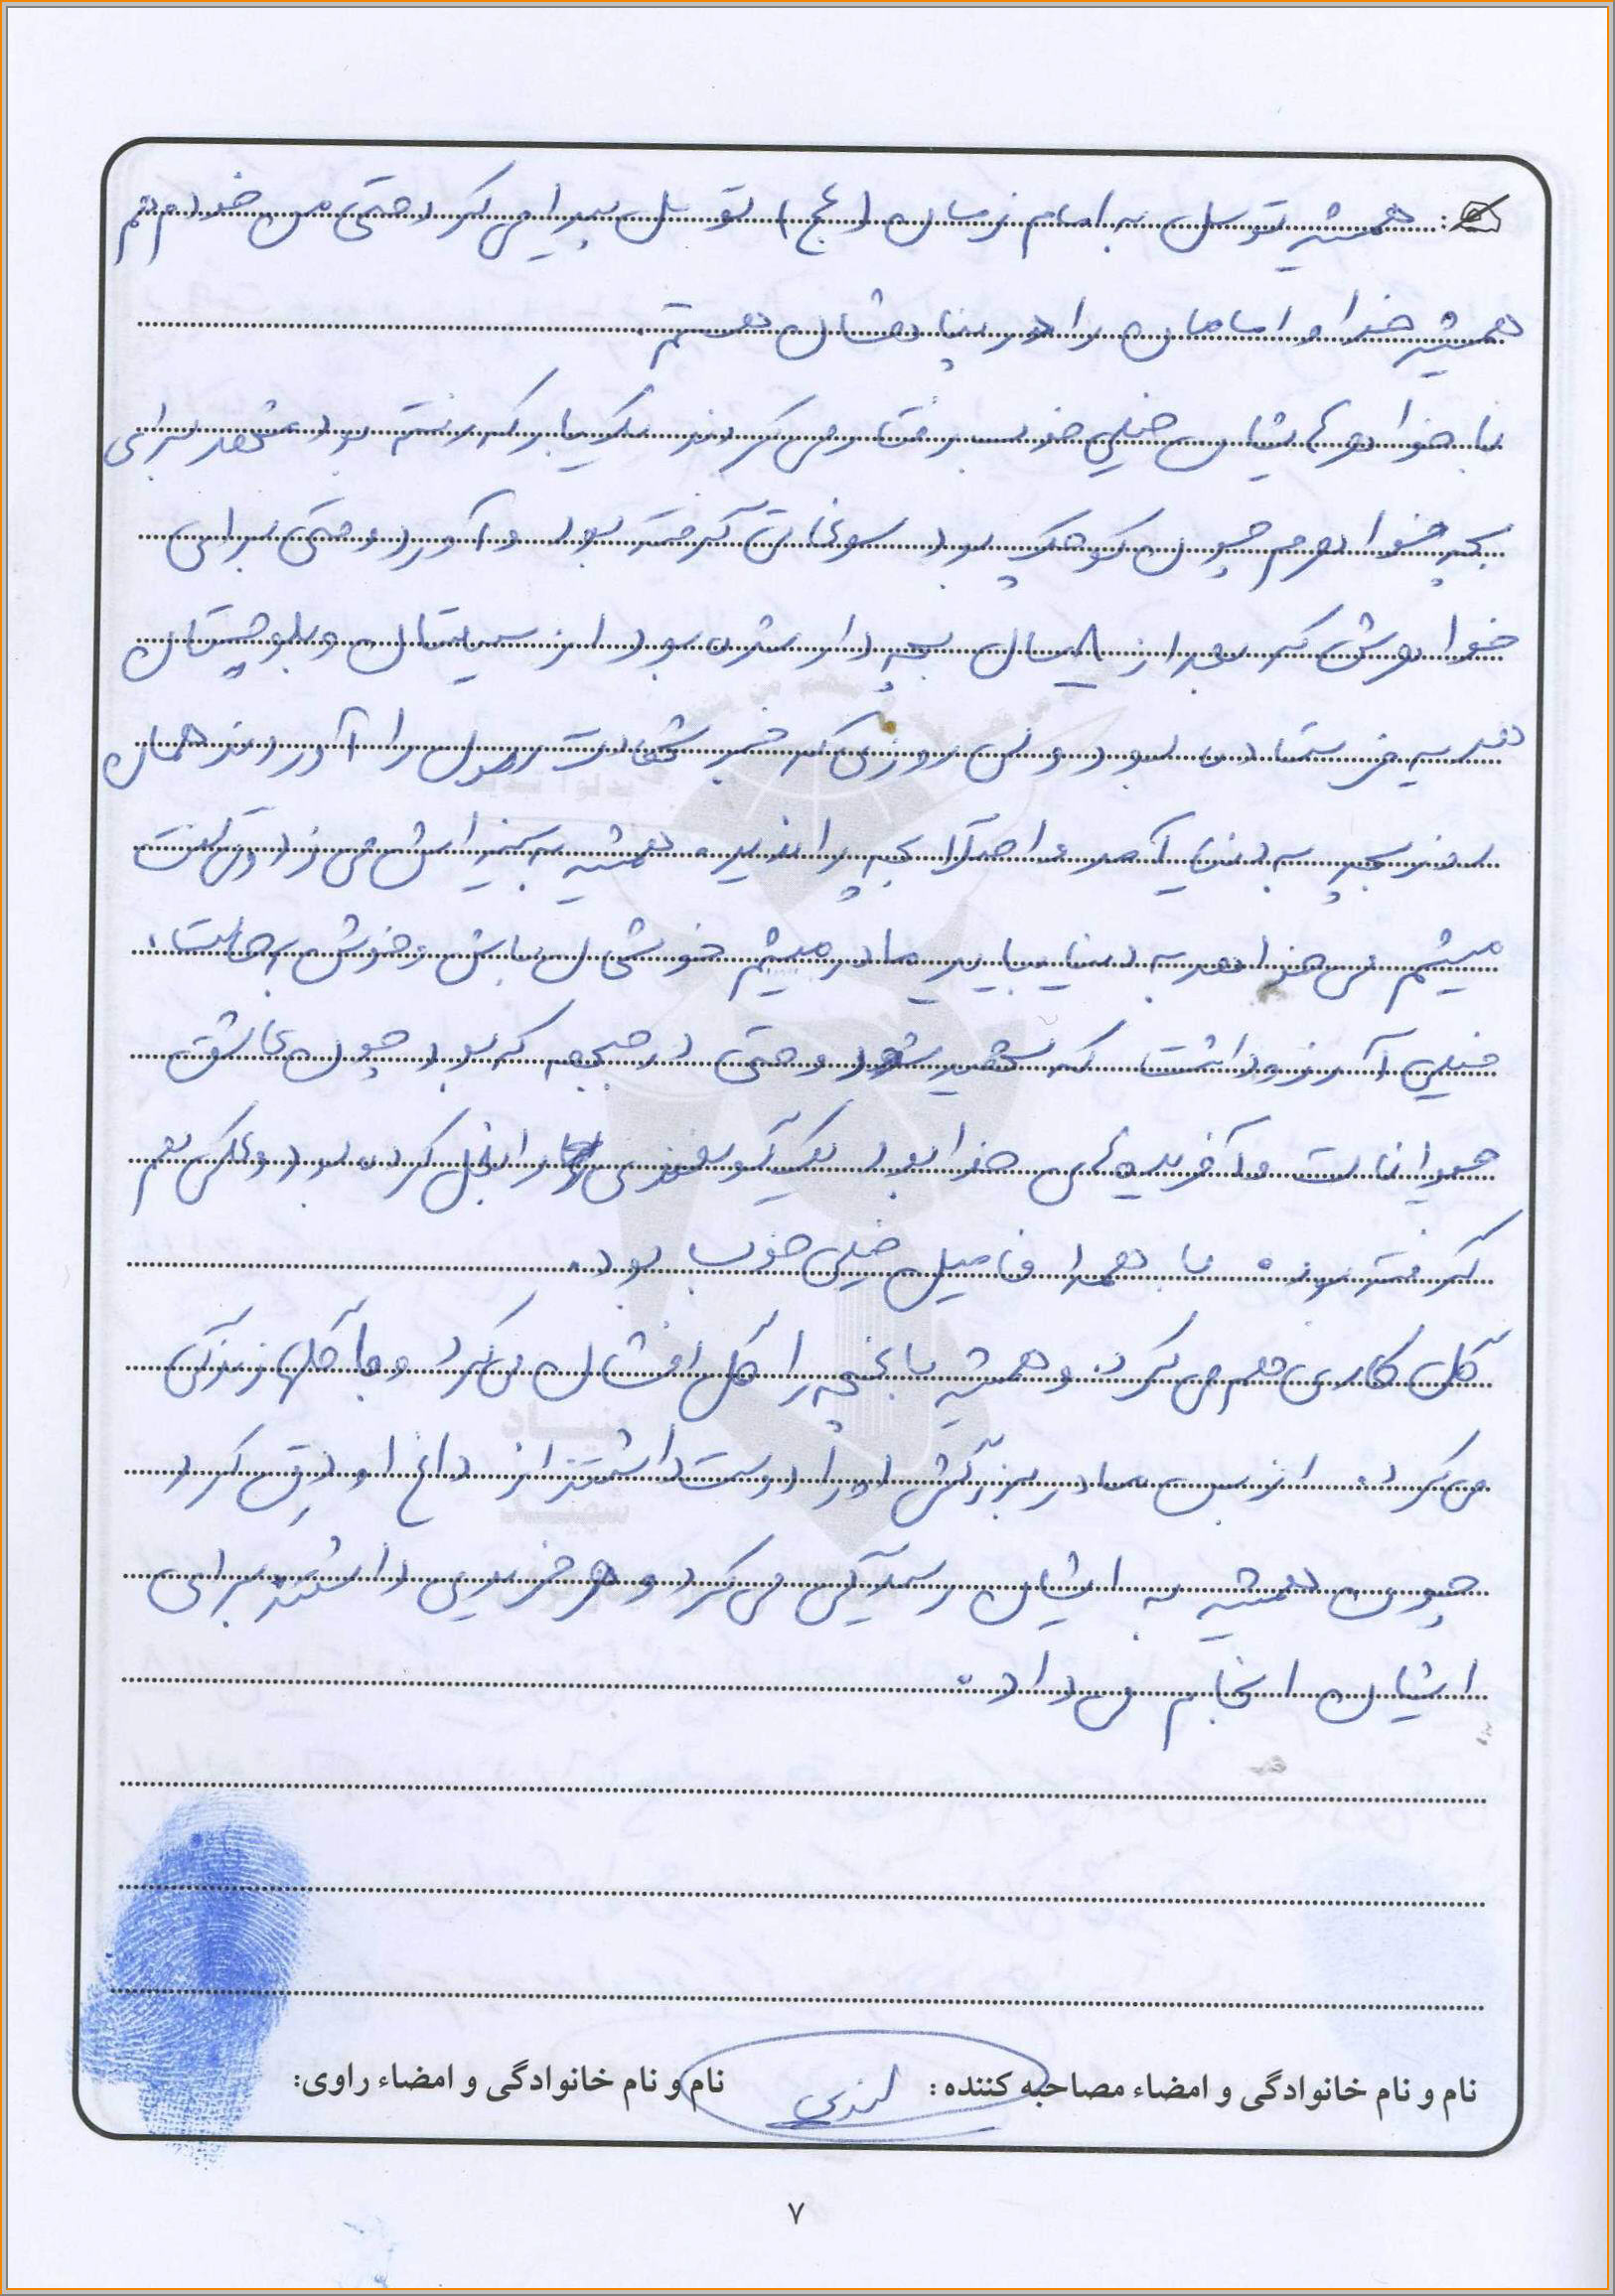 همیشه توسل به امام زمان (عج) توسل پیدا می کرد حتی من خودم هم
همیشه خدا و امامان را در پناهشان هستم.
با خواهرهایشان خیلی خوب رفتار می کردند یکبار که رفته بود مشهد برای
بچه خواهرم چون کوچک بود سوغاتی گرفته بود و آورد و حتی برای
خواهرش که بعد از ۸ سال بچه دار شده بود از سیستان و بلوچستان
هدیه فرستاده بود ولی روزی که خبر شهادت رسول را آوردند همان
روز بچه به دنیا آمد و اصلا بچه را ندید. همیشه به بهنزایش می زد و می گفت
میثم می خواهد به دنیا بیاید مادر میثم خوشحال باش و خوش به حالت.
خیلی آرزو داشت که شهید شود و حتی در جبهه که بود چون عاشق
حیوانات و آفریده های خدا بود یک گوسفندی را بغل کرده بود و عکس هم
گرفته بود. با همه فامیل خیلی خوب بود.
گل کاری هم می کرد. و همیشه باغچه را گل افشان می کرد و با گلها زندگی
می کرد. از بس مادر بزرگش او را دوست داشتند از داغ او دق کرد
چون همیشه به ایشان رسیدگی می کرد و هر خریدی داشتند برای
ایشان انجام می داد.
نام و نام خانوادگی و امضاء مصاحبه کننده: نام و نام خانوادگی و امضاء راوی:
۷